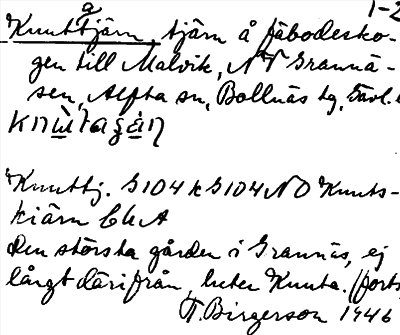 1-2
Knuttjärn, tjärn å fäbodesko-
gen till Malvik, NV Grannä-
sen, Alfta sn, Bollnäs tg, Gävl. l
Knuttj. G104 k G104 NO Knuts-
kiärn
Den största gården i Grannäs, ej
långt därifrån, heter Knuta. (forts.
T. Birgerson 1946